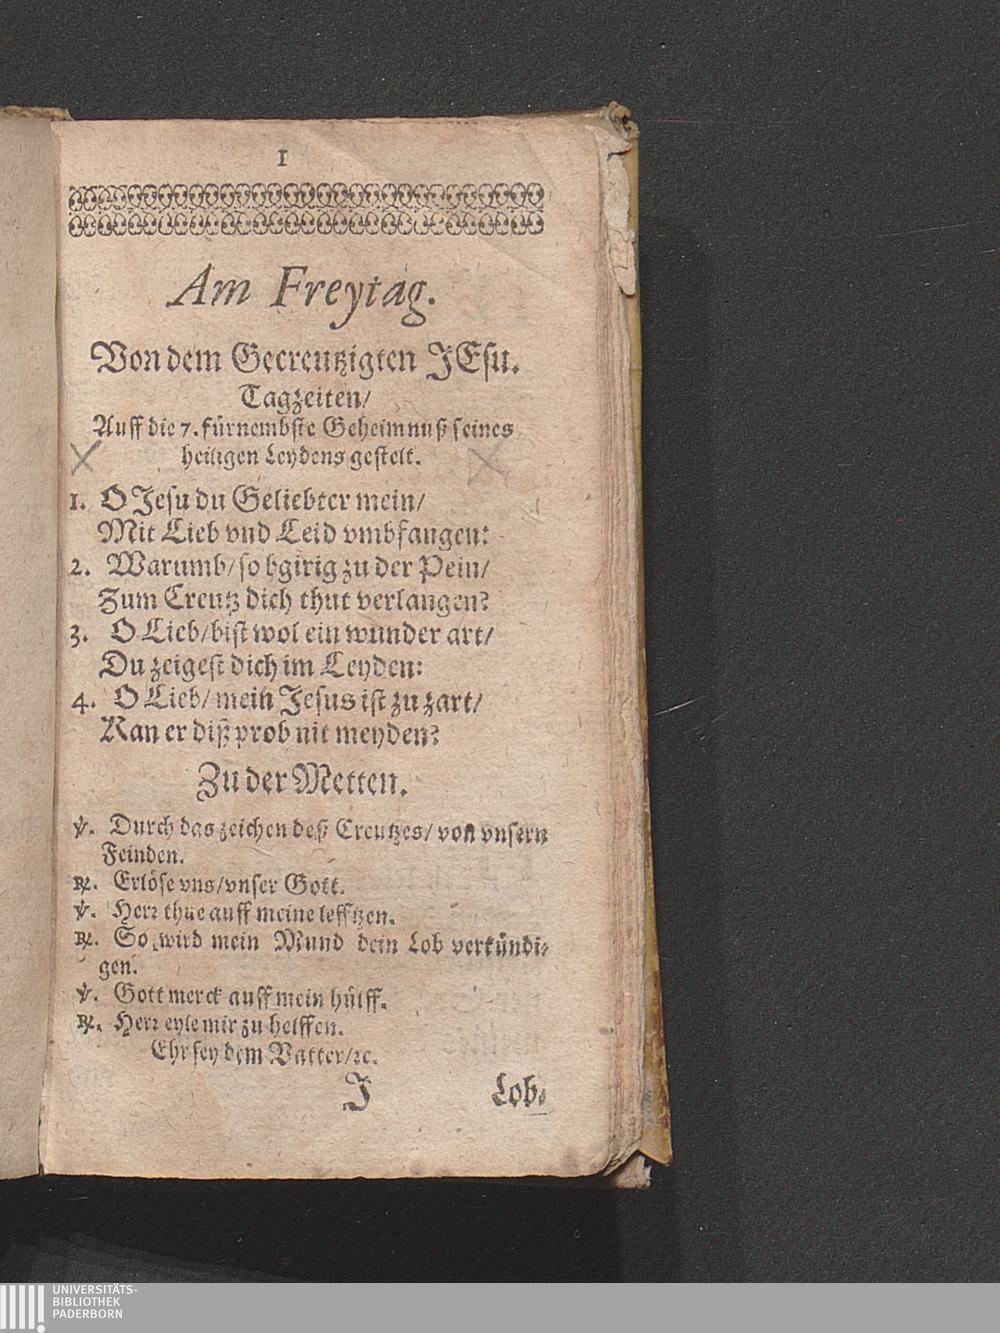 1
Am Freytag.
Von dem Gecreutzigten JEsu.
Tagzeiten/
Auff die 7. fürnembste Geheimnuß seines
heiligen Leydens gestelt.
1. O Jesu du Geliebter mein/
Mit Lieb vnd Leid vmbfangen:
2. Warumb/ so bgirig zu der Pein/
Zum Creutz dich thut verlangen?
3. O Lieb/ bist wol ein wunder art/
Du zeigest dich im Leyden:
4. O Lieb/ mein Jesus ist zu zart/
Kan er diß prob nit meyden?
Zu der Metten.
℣. Durch das zeichen deß Creutzes/ von vnsern
Feinden.
℟. Erlöse vns/ vnser Gott.
℣. Herr thue auff meine lefftzen.
℟. So wird mein Mund dein Lob verkündi-
gen.
℣. Gott merck auff mein hülff.
℟. Herr eyle mir zu helffen.
Ehr sey dem Vatter/ ꝛc.
J Lob-
UNIVERSITÄTS-
BIBLIOTHEK
PADERBORN